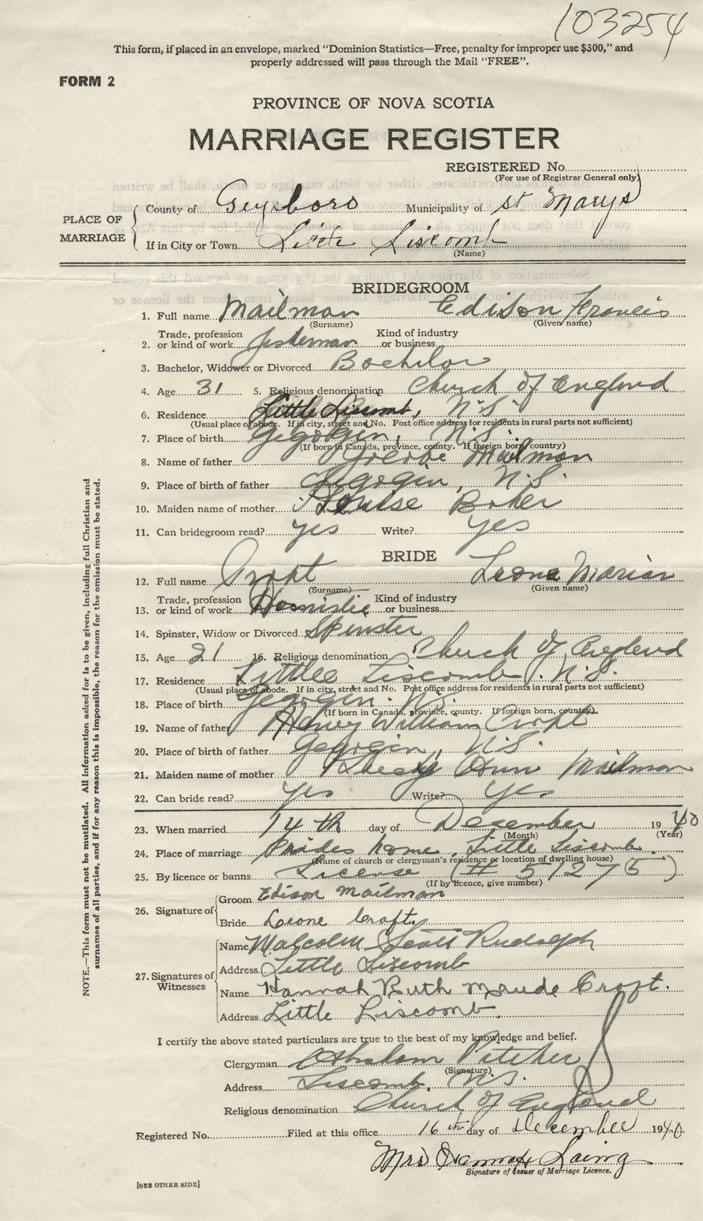 103254
This form, if placed in an envelope, marked "Dominion Statistics—Free, penalty for improper use $300," and
properly addressed will pass through the Mail "FREE".
FORM 2
PROVINCE OF NOVA SCOTIA
MARRIAGE REGISTER
REGISTERED No
(For use of Registrar General only)
PLACE OF MARRIAGE
County of Guysboro Municipality of St Marys
If in City or Town Little Liscomb
(Name)
BRIDEGROOM
1. Full name Mailman Edison Francis
(Surname) (Given name)
Trade, profession Kind of industry
2. or kind of work fisherman or business
3. Bachelor, Widower or Divorced Bachelor
4. Age 31 5. Religious denomination Church of England
6. Residence Little Liscomb, N.S.
(Usual place of abode. If in city, street and No. Post office address for residents in rural parts not sufficient)
7. Place of birth Gegogin, N.S.
(If born in Canada, province, county. If foreign born, country)
8. Name of father George Mailman
9. Place of birth of father Gegogin, N.S.
10. Maiden name of mother Louise Baker
11. Can bridegroom read? yes Write? yes
BRIDE
12. Full name Croft Leone Marian
(Surname) (Given name)
Trade, profession Kind of industry
13. or kind of work Domistic or business
14. Spinster, Widow or Divorced Spinster
15. Age 21 16. Religious denomination Church of England
17. Residence Little Liscomb, N.S.
(Usual place of abode. If in city, street and No. Post office address for residents in rural parts not sufficient)
18. Place of birth Gegogin, N.S.
(If born in Canada, province, county. If foreign born, country)
19. Name of father Henry William Croft
20. Place of birth of father Gegogin, N.S.
21. Maiden name of mother Ann Mailman
22. Can bride read? yes Write? yes
23. When married 14th day of December 1940
(Month) (Year)
24. Place of marriage Brides home, Little Liscomb
(Name of church or clergyman's residence or location of dwelling house)
25. By licence or banns License (# 51275)
(If by licence, give number)
26. Signature of
Groom Edison Mailman
Bride Leone Croft
27. Signatures of Witnesses
Name Malcolm Scott Rudolph
Address Little Liscomb
Name Hannah Ruth Maude Croft.
Address Little Liscomb.
I certify the above stated particulars are true to the best of my knowledge and belief.
Clergyman Abraham Pitcher
(Signature)
Address Liscomb, N.S.
Religious denomination Church of England
Registered No. Filed at this office 16th day of December 1940
Mrs Hannah Laing
Signature of Issuer of Marriage Licence.
[SEE OTHER SIDE]
NOTE.—This form must not be mutilated. All Information asked for is to be given, including full Christian and
surnames of all parties, and if for any reason this is impossible, the reason for the omission must be stated.